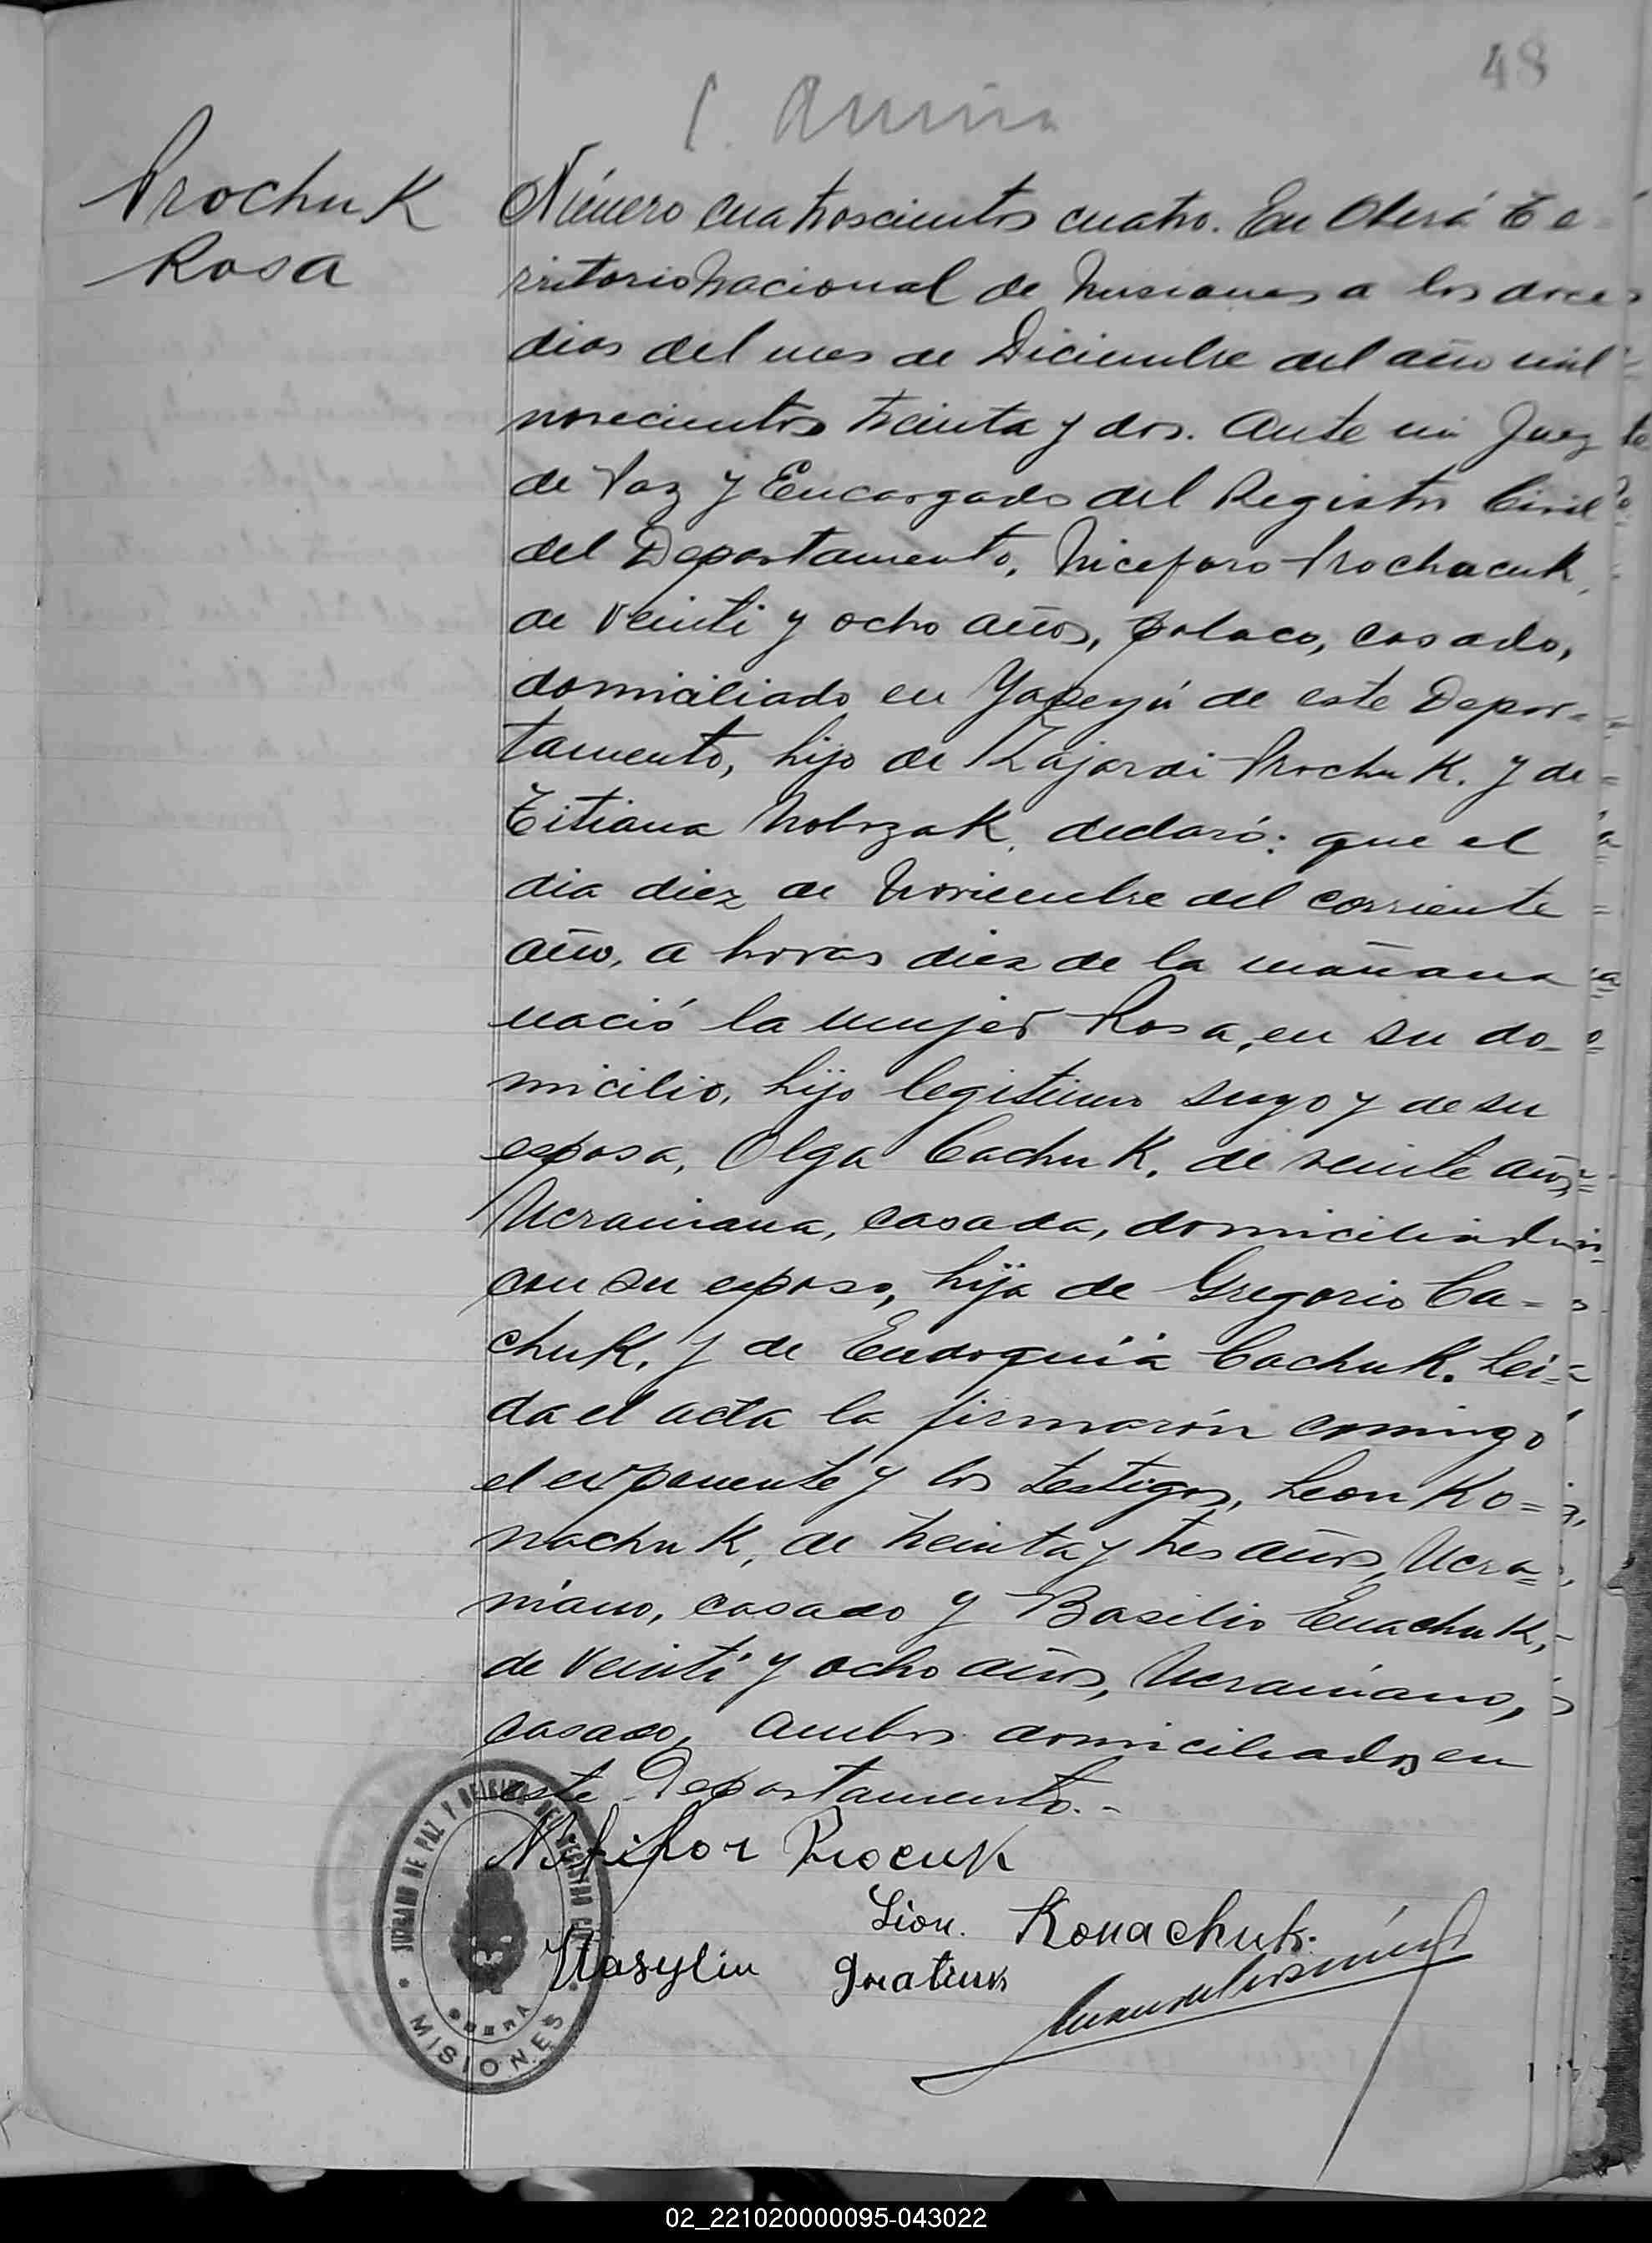 48
Prochuk
Rosa
Número cuatroscientos cuatro. En Oberá Te-
rritorio Nacional de Misiones a los doce
dias del mes de Diciembre del año mil
novecientos treinta y dos. Ante mi Juez
de Paz y Encargado del Registro Civil
del Departamento, Niceforo Prochacuk,
de veinti y ocho años, polaco, casado,
domiciliado en Yapeyú de este Depar-
tamento, hijo de Zajardi Prochuk. y de
Titiana Nobozak, declaró: que el
dia diez de Noviembre del corriente
año, a horas diez de la mañana
nació la mujer Rosa, en su do-
micilio, hijo legitimo suyo y de su
esposa, Olga Cachuk, de veinte años,
Ucraniana, casada, domiciliada
con su esposo, hija de Gregorio Ca-
chuk, y de Eudoquia Cachuk. Lei-
da el acta la firmarón comingo
el exponente y los testigos, Leon Ko-
nachuk, de treinta y tres años, Ucra-
niano, casado y Basilio Enachuk,
de veinti y ocho años, Ucraniano,
casado, ambos domiciliados en
este Departamento.-
Nikifor Procuk
Lion. Konachuk.
Wasylin Gnatiuk
JUZGADO DE PAZ Y REGISTRO DEL ESTADO CIVIL
OBERA
MISIONES
02_221020000095-043022